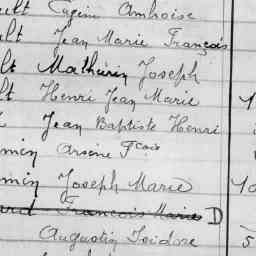 Eugène Ambroise
Jean Marie François
lt Mathurin Joseph
lt Henri Jean Marie
Jean Baptiste Henri
min Arsène Fçois
min Joseph Marie
ard François Marie D
Augustin Isidore 5